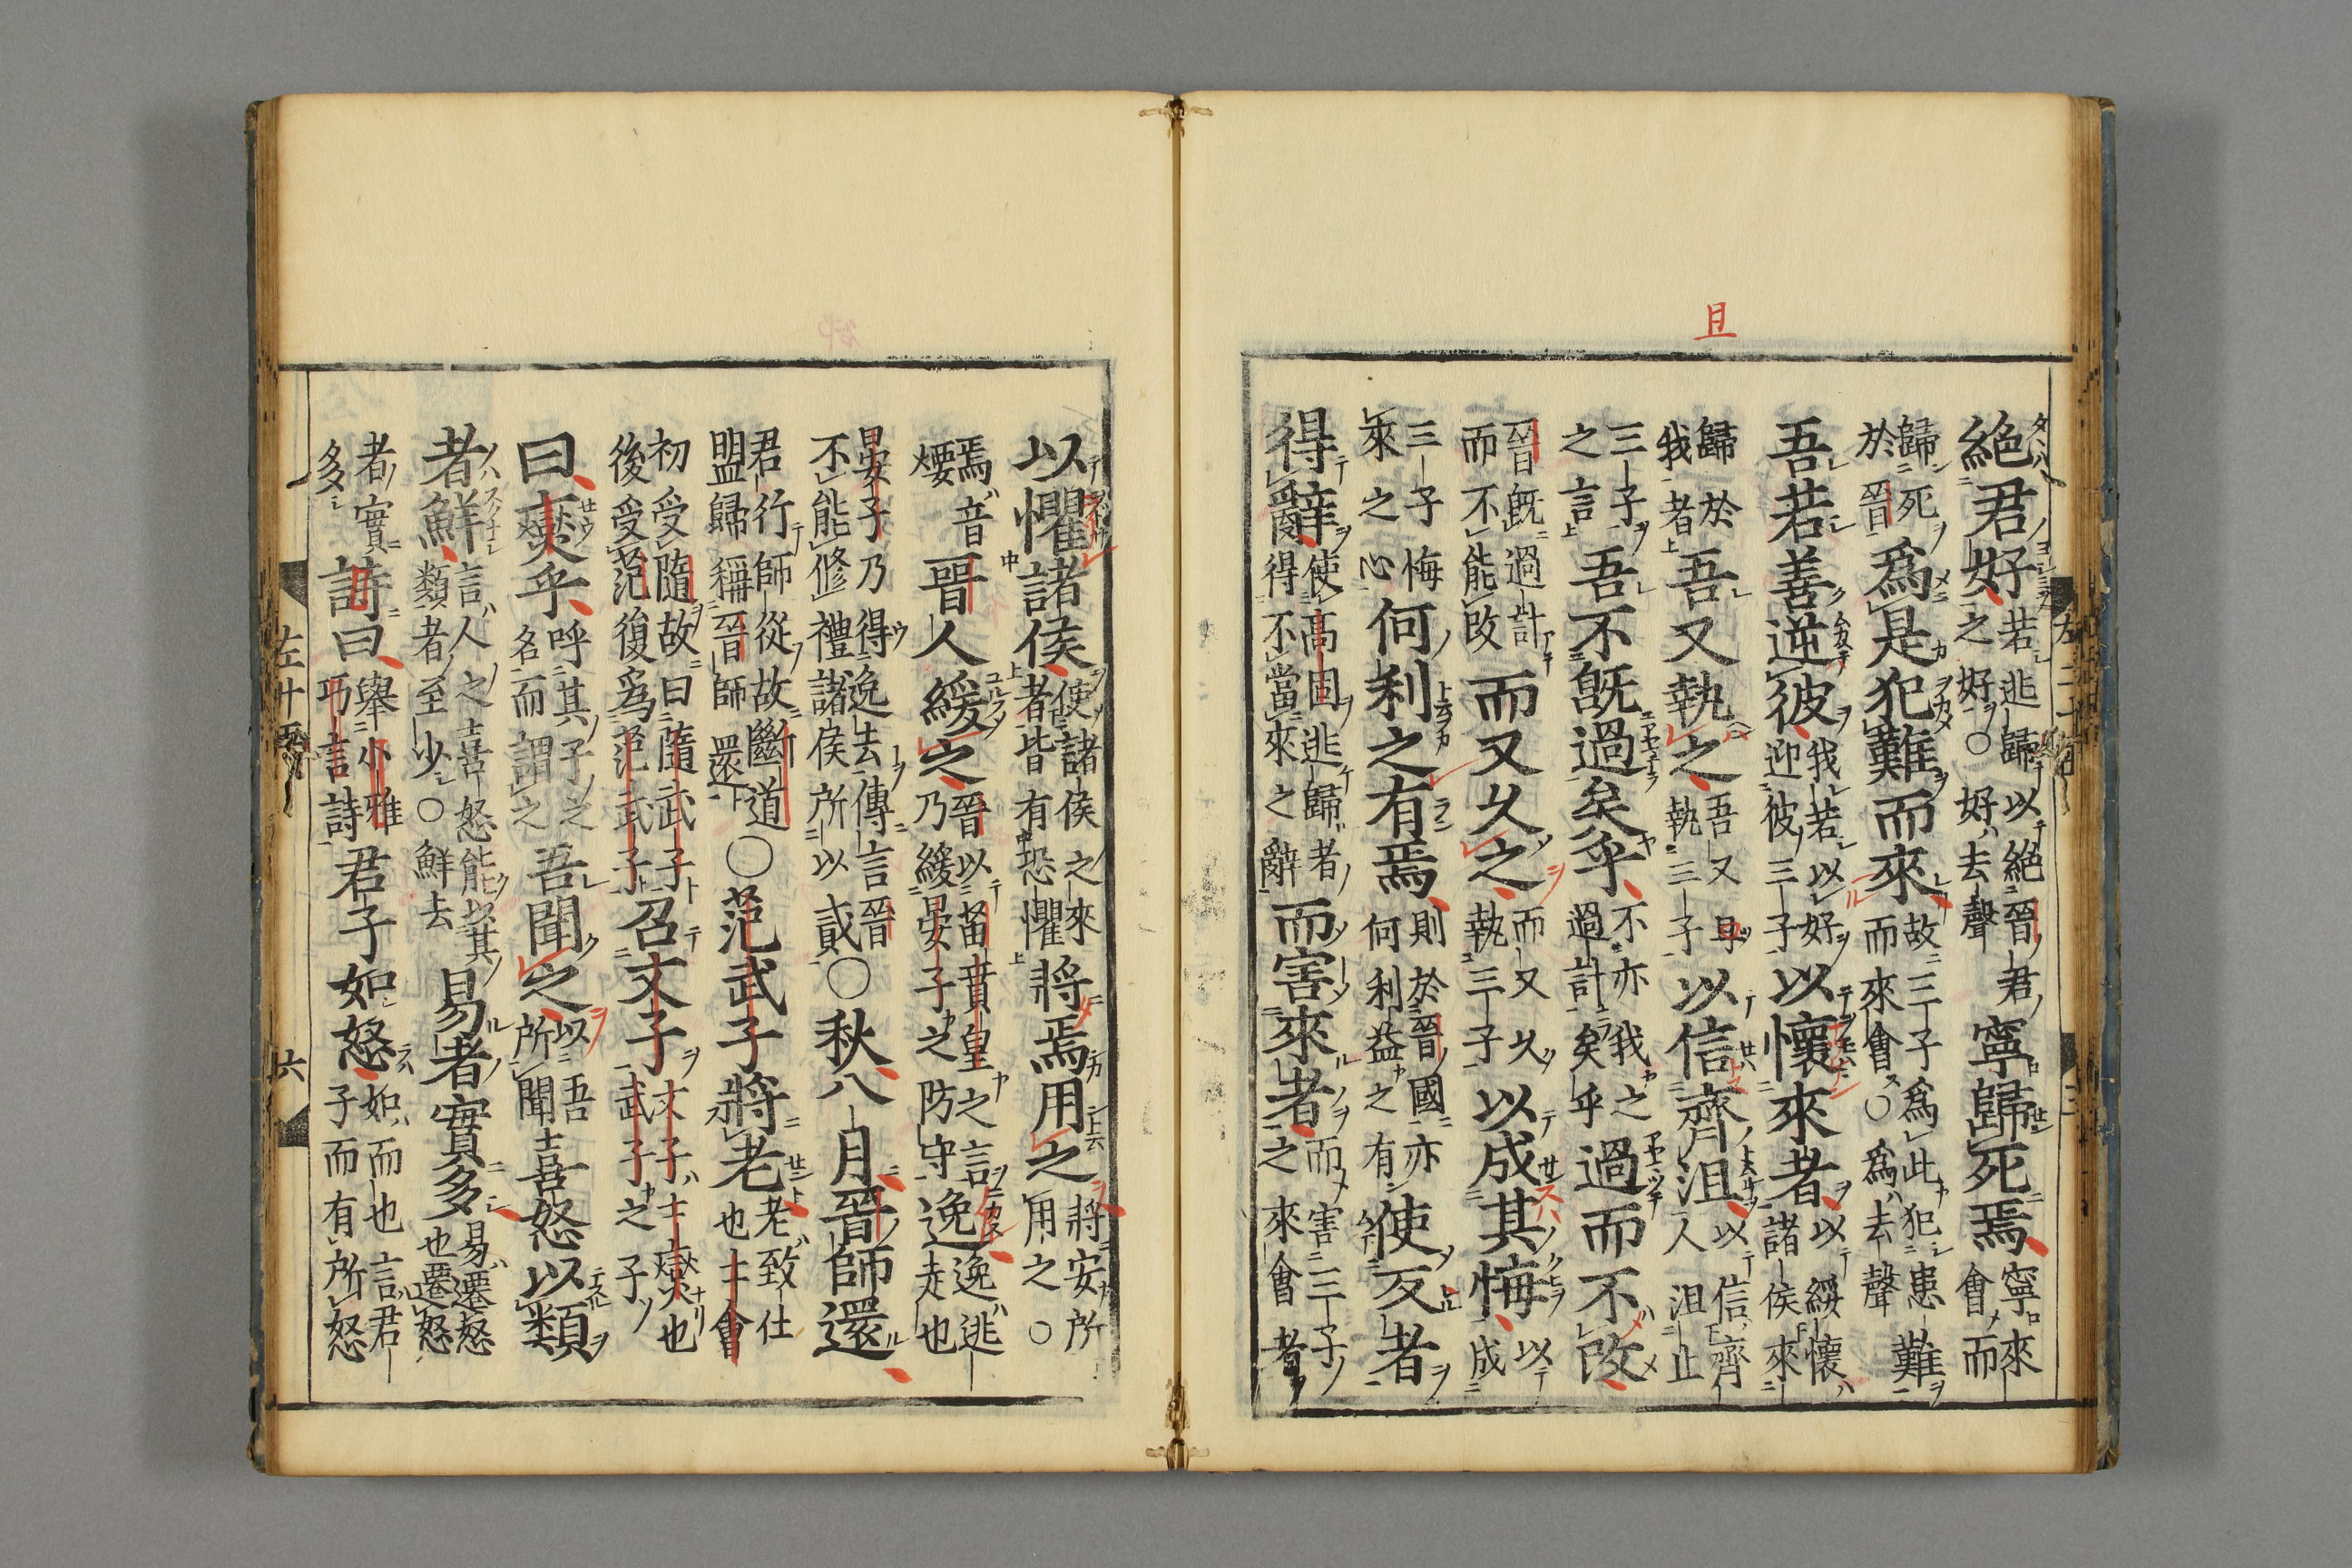 且
絶君好若逃歸以絶晉君之好○好去聲寧歸死焉寧來會而
歸死於晉爲是犯難而來故三子爲此犯患難而來會○爲去聲
吾若善逆彼我若以好迎彼三子以懷來者以綏懷諸侯來
歸於我者吾又執之吾又執三子且以信齊沮以信齊人沮止
三子之言吾不既過矣乎不亦我之過計矣乎過而不改
晉既過計而不能改而又久之而又久執三子以成其悔以成
三子悔來之心何利之有焉則於晉國亦何利益之有使反者
得辭使高固逃歸者得不當來之辭而害來者而害三子之來會者
以懼諸侯使諸侯之來者皆有恐懼將焉用之將安所用之○
焉音煙晉人緩之晉以苗賁皇之言乃緩晏子之防守逸逸逃走也
晏子乃得逸去傳言晉不能修禮諸侯所以貳○秋八月晉師還
君行師從故斷道盟歸稱晉師還○范武子將老老致仕也士會
初受隨故曰隨武子後受范復爲范武子召文子文子士燮也武子之子
曰燮乎呼其子之名而謂之吾聞之以吾所聞喜怒以類
者鮮言人之喜怒能以其類者至少○鮮去易者實多易遷怒也遷怒
者實多詩曰舉小雅巧言詩君子如怒如而也言君子而有所怒
左十五
六